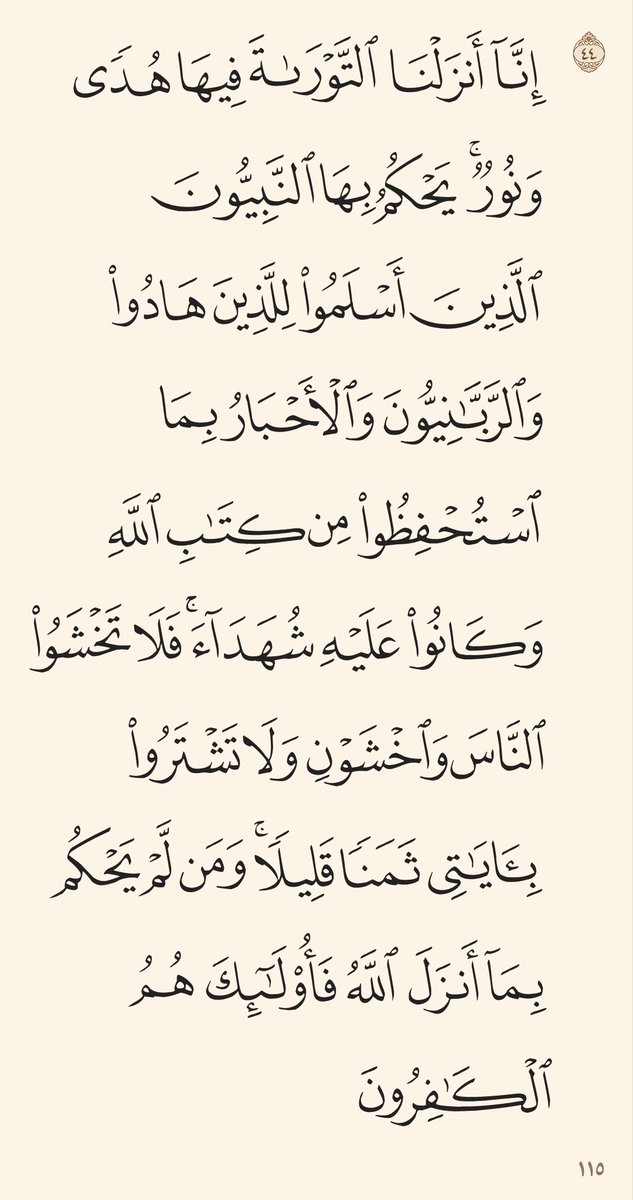 ٤٤
إِنَّآ أَنزَلْنَا ٱلتَّوْرَىٰةَ فِيهَا هُدًى
وَنُورٌ ۚ يَحْكُمُ بِهَا ٱلنَّبِيُّونَ
ٱلَّذِينَ أَسْلَمُوا۟ لِلَّذِينَ هَادُوا۟
وَٱلرَّبَّـٰنِيُّونَ وَٱلْأَحْبَارُ بِمَا
ٱسْتُحْفِظُوا۟ مِن كِتَـٰبِ ٱللَّهِ
وَكَانُوا۟ عَلَيْهِ شُهَدَآءَ ۚ فَلَا تَخْشَوُا۟
ٱلنَّاسَ وَٱخْشَوْنِ وَلَا تَشْتَرُوا۟
بِـَٔايَـٰتِى ثَمَنًا قَلِيلًا ۚ وَمَن لَّمْ يَحْكُم
بِمَآ أَنزَلَ ٱللَّهُ فَأُو۟لَـٰٓئِكَ هُمُ
ٱلْكَـٰفِرُونَ
١١٥